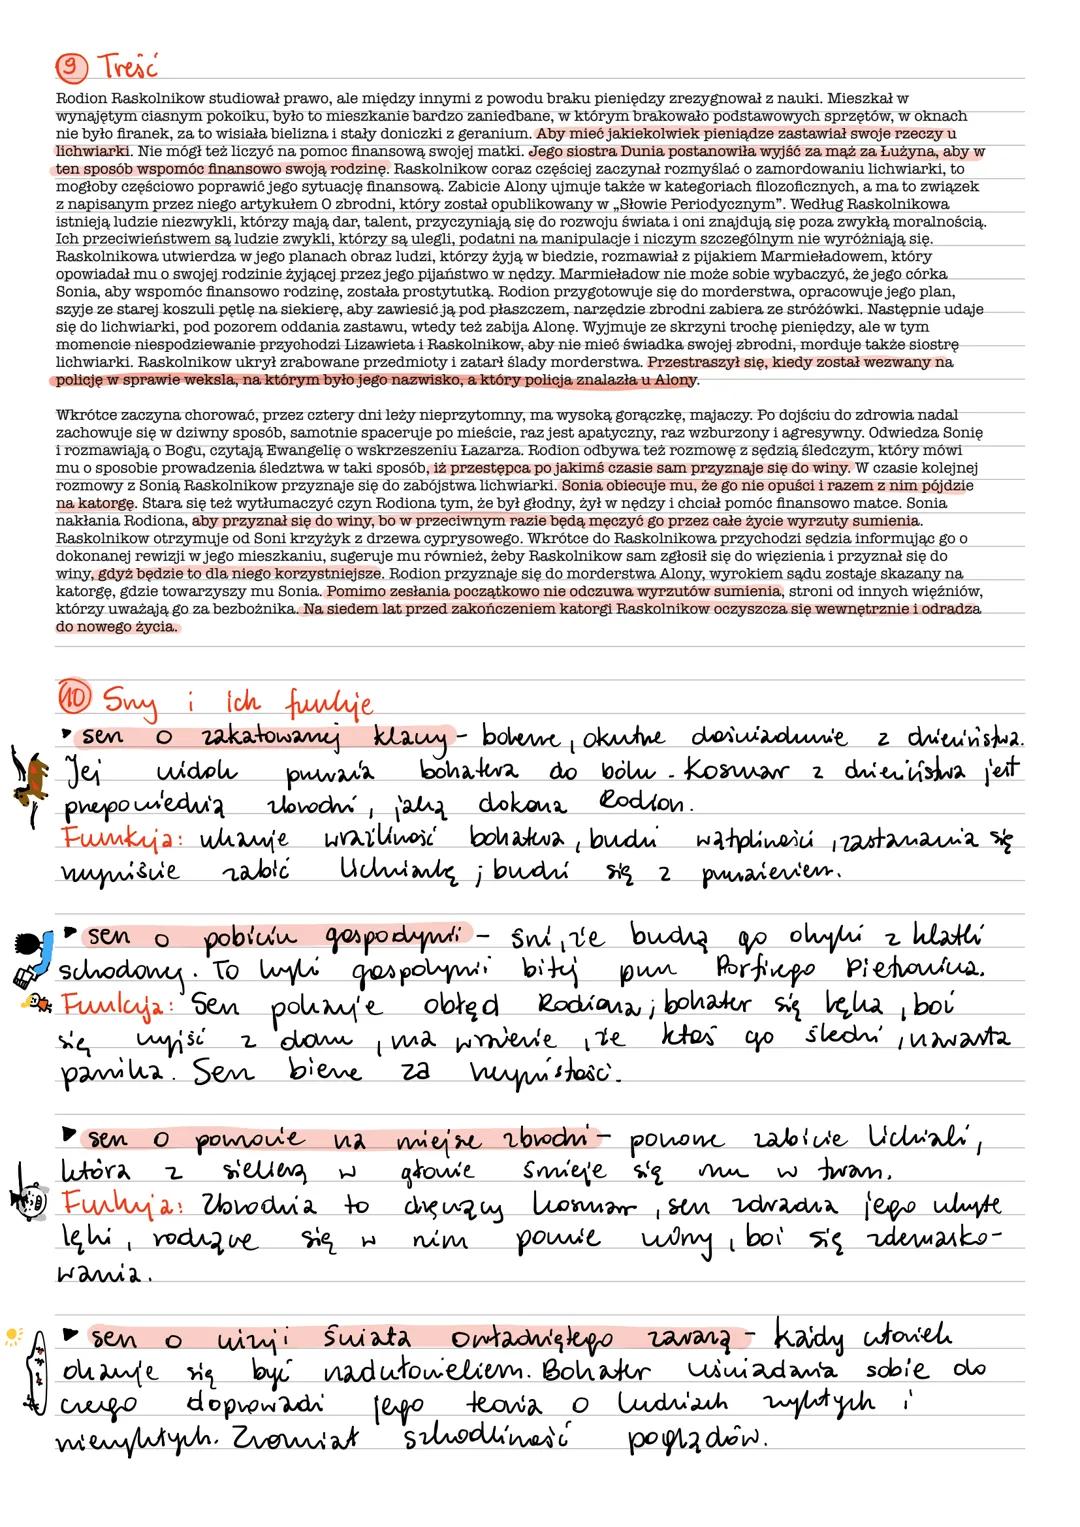 9 Treść
Rodion Raskolnikow studiował prawo, ale między innymi z powodu braku pieniędzy zrezygnował z nauki. Mieszkał w
wynajętym ciasnym pokoiku, było to mieszkanie bardzo zaniedbane, w którym brakowało podstawowych sprzętów, w oknach
nie było firanek, za to wisiała bielizna i stały doniczki z geranium. Aby mieć jakiekolwiek pieniądze zastawiał swoje rzeczy u
lichwiarki. Nie mógł też liczyć na pomoc finansową swojej matki. Jego siostra Dunia postanowiła wyjść za mąż za Łużyna, aby w
ten sposób wspomóc finansowo swoją rodzinę. Raskolnikow coraz częściej zaczynał rozmyślać o zamordowaniu lichwiarki, to
mogłoby częściowo poprawić jego sytuację finansową. Zabicie Alony ujmuje także w kategoriach filozoficznych, a ma to związek
z napisanym przez niego artykułem O zbrodni, który został opublikowany w „Słowie Periodycznym”. Według Raskolnikowa
istnieją ludzie niezwykli, którzy mają dar, talent, przyczyniają się do rozwoju świata i oni znajdują się poza zwykłą moralnością.
Ich przeciwieństwem są ludzie zwykli, którzy są ulegli, podatni na manipulacje i niczym szczególnym nie wyróżniają się.
Raskolnikowa utwierdza w jego planach obraz ludzi, którzy żyją w biedzie, rozmawiał z pijakiem Marmieładowem, który
opowiadał mu o swojej rodzinie żyjącej przez jego pijaństwo w nędzy. Marmieładow nie może sobie wybaczyć, że jego córka
Sonia, aby wspomóc finansowo rodzinę, została prostytutką. Rodion przygotowuje się do morderstwa, opracowuje jego plan,
szyje ze starej koszuli pętlę na siekierę, aby zawiesić ją pod płaszczem, narzędzie zbrodni zabiera ze stróżówki. Następnie udaje
się do lichwiarki, pod pozorem oddania zastawu, wtedy też zabija Alonę. Wyjmuje ze skrzyni trochę pieniędzy, ale w tym
momencie niespodziewanie przychodzi Lizawieta i Raskolnikow, aby nie mieć świadka swojej zbrodni, morduje także siostrę
lichwiarki. Raskolnikow ukrył zrabowane przedmioty i zatarł ślady morderstwa. Przestraszył się, kiedy został wezwany na
policję w sprawie weksla, na którym było jego nazwisko, a który policja znalazła u Alony.
Wkrótce zaczyna chorować, przez cztery dni leży nieprzytomny, ma wysoką gorączkę, majaczy. Po dojściu do zdrowia nadal
zachowuje się w dziwny sposób, samotnie spaceruje po mieście, raz jest apatyczny, raz wzburzony i agresywny. Odwiedza Sonię
i rozmawiają o Bogu, czytają Ewangelię o wskrzeszeniu Łazarza. Rodion odbywa też rozmowę z sędzią śledczym, który mówi
mu o sposobie prowadzenia śledztwa w taki sposób, iż przestępca po jakimś czasie sam przyznaje się do winy. W czasie kolejnej
rozmowy z Sonią Raskolnikow przyznaje się do zabójstwa lichwiarki. Sonia obiecuje mu, że go nie opuści i razem z nim pójdzie
na katorgę. Stara się też wytłumaczyć czyn Rodiona tym, że był głodny, żył w nędzy i chciał pomóc finansowo matce. Sonia
nakłania Rodiona, aby przyznał się do winy, bo w przeciwnym razie będą męczyć go przez całe życie wyrzuty sumienia.
Raskolnikow otrzymuje od Soni krzyżyk z drzewa cyprysowego. Wkrótce do Raskolnikowa przychodzi sędzia informując go o
dokonanej rewizji w jego mieszkaniu, sugeruje mu również, żeby Raskolnikow sam zgłosił się do więzienia i przyznał się do
winy, gdyż będzie to dla niego korzystniejsze. Rodion przyznaje się do morderstwa Alony, wyrokiem sądu zostaje skazany na
katorgę, gdzie towarzyszy mu Sonia. Pomimo zesłania początkowo nie odczuwa wyrzutów sumienia, stroni od innych więźniów,
którzy uważają go za bezbożnika. Na siedem lat przed zakończeniem katorgi Raskolnikow oczyszcza się wewnętrznie i odradza
do nowego życia.
10 Sny i ich funkcje
▸ sen o zakatowanej klaczy - bolesne, okrutne doświadczenie z dzieciństwa.
Jej widok porusza bohatera do bólu. Koszmar z dzieciństwa jest
przepowiednią zbrodni, jaką dokona Rodion.
Funkcja: ukazuje wrażliwość bohatera, budzi wątpliwości, zastanawia się
czy zabić lichwiarkę; budzi się z przerażeniem.
▸ sen o pobiciu gospodyni - śni, że budzą go okrzyki z klatki
schodowej. To krzyki gospodyni bitej przez Porfirego Pietrowicza.
Funkcja: Sen pokazuje obłęd Rodiona; bohater się lęka, boi
się wyjść z domu, ma wrażenie, że ktoś go śledzi, narasta
panika. Sen bierze za rzeczywistość.
▸ sen o powrocie na miejsce zbrodni - ponowne zabicie lichwiarki,
która z siekierą w głowie śmieje się mu w twarz.
Funkcja: Zbrodnia to dręczący koszmar, sen zdradza jego ukryte
lęki, rodzące się w nim poczucie winy, boi się zdemasko-
wania.
▸ sen o wizji świata owładniętego zarazą - każdy człowiek
okazuje się być nadczłowiekiem. Bohater uświadamia sobie do
czego doprowadzi jego teoria o ludziach zwykłych i
niezwykłych. Zrozumiał szkodliwość poglądów.